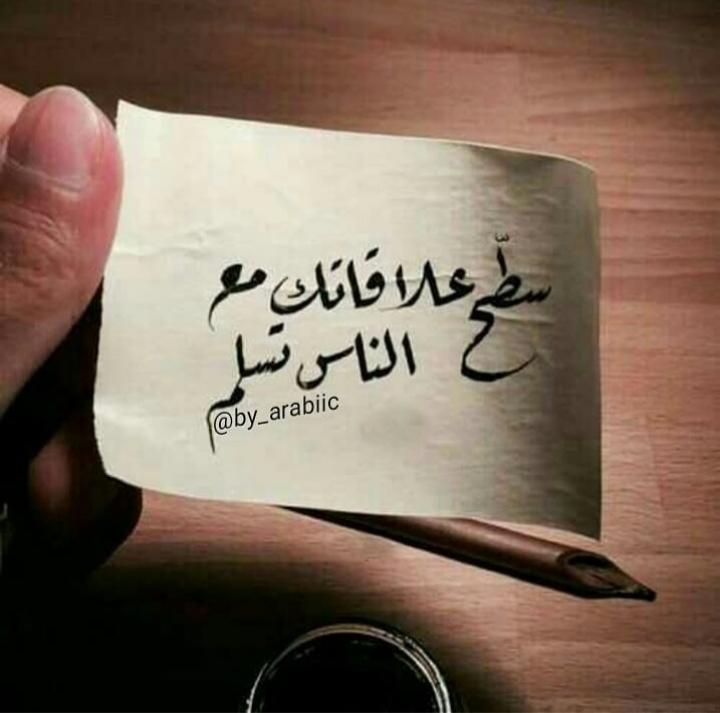 سطّح علاقاتك مع
الناس تسلم
@by_arabiic